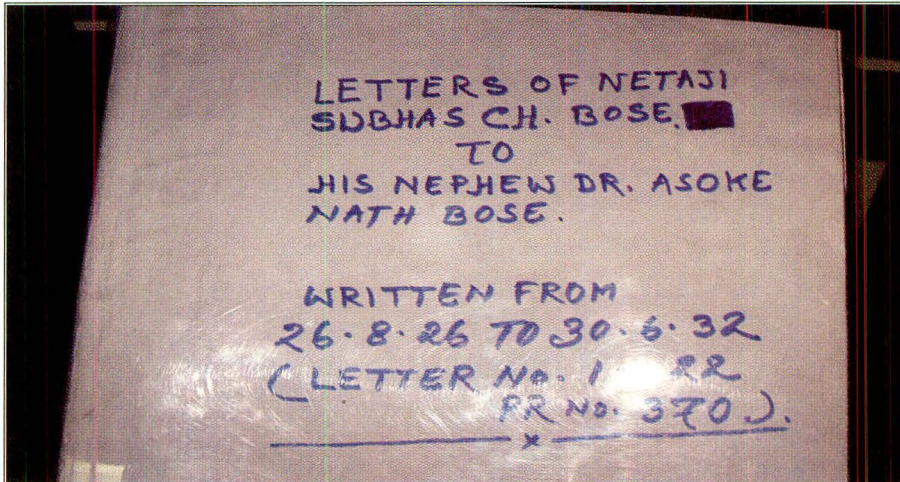 LETTERS OF NETAJI
SUBHAS CH. BOSE.
TO
HIS NEPHEW DR. ASOKE
NATH BOSE.
WRITTEN FROM
26.8.26 TO 30.6.32
(LETTER NO. 1 22
PR NO. 370).